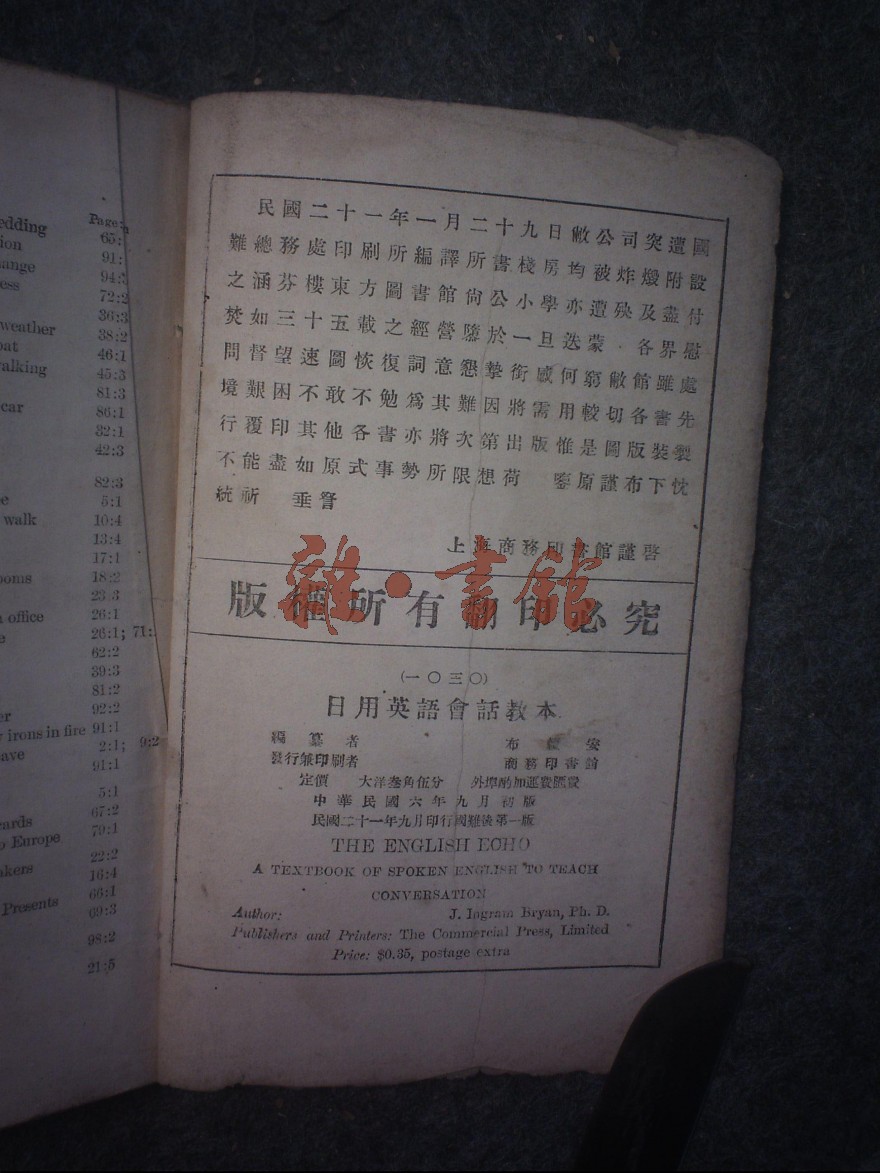 edding
Page
65:
ange
91:
94:3
72:2
36:3
weather
38:2
46:1
alking
45:3
81:3
car
86:1
32:1
42:3
82:3
5:1
walk
10:4
13:4
17:1
ooms
18:2
23:3
office
26:1
26:1; 71:
62:2
39:3
81:2
92:2
irons in fire 91:1
ave
2:1; 9:2
91:1
5:1
ards
67:2
o Europe
79:1
22:2
akers
16:4
66:1
Presents
69:3
98:2
21:5
民國二十一年一月二十九日敝公司突遭國
難總務處印刷所編譯所書棧房均被炸燬附設
之涵芬樓東方圖書館尙公小學亦遭殃及盡付
焚如三十五載之經營隳於一旦迭蒙 各界慰
問督望速圖恢復詞意懇摯銜感何窮敝館雖處
境艱困不敢不勉爲其難因將需用較切各書先
行覆印其他各書亦將次第出版惟是圖版裝製
不能盡如原式事勢所限想荷 鑒原謹布下忱
統祈 垂詧
上海商務印書館謹啓
版權所有翻印必究
雜·書館
(一〇三〇)
日用英語會話教本
編纂者 布 安
發行兼印刷者 商務印書館
定價 大洋叁角伍分 外埠酌加運費匯費
中華民國六年九月初版
民國二十一年九月印行國難後第一版
THE ENGLISH ECHO
A TEXTBOOK OF SPOKEN ENGLISH TO TEACH
CONVERSATION
Author: J. Ingram Bryan, Ph. D.
Publishers and Printers: The Commercial Press, Limited
Price: $0.35, postage extra